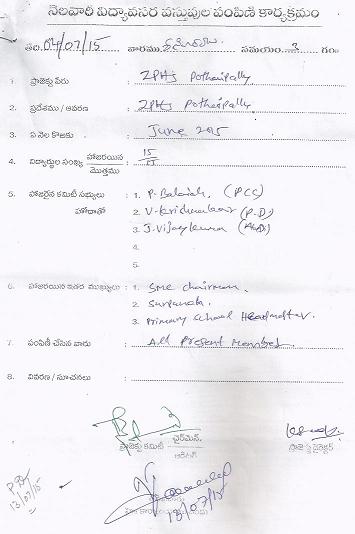 నెలవారి విద్యావసర వస్తువుల పంపిణి కార్యక్రమం
తేది. 04/07/15 వారము శనివారం సమయం 3 గం॥
1. ప్రాజెక్టు పేరు : ZPHS Pothaipally
2. ప్రదేశము / ఆవరణ : ZPHS Pothaipally
3. ఏ నెల కొఱకు : June 2015
4. విద్యార్థుల సంఖ్య హాజరయిన / మొత్తము : 15 / 15
5. హాజరైన కమిటీ సభ్యులు : 1. P. Balaiah (PCC)
హోదాతో 2. V. Krishna (P.D)
3. J. Vijay Kumar
4.
5.
6. హాజరయిన ఇతర ముఖ్యులు : 1. SMC chairman.
2. Surpanch.
3. Primary School Headmaster.
7. పంపిణి చేసిన వారు : All Present Members
8. వివరణ / సూచనలు :
ప్రాజెక్టు కమిటీ ఛైర్మెన్ ప్రాజెక్ట్ డైరెక్టర్
13/07/15
13/07/15